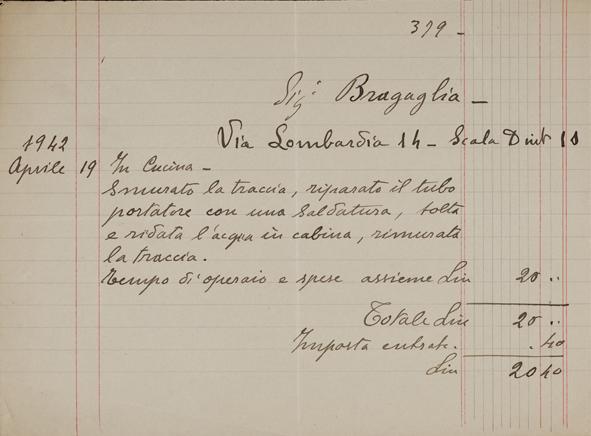 379 -
Sigr Bragaglia -
1942 Via Lombardia 14 - Scala D int 11
Aprile 19 In Cucina -
Smurato la traccia, riparato il tubo
portatore con una Saldatura, tolta
e ridata l'acqua in cabina, rimurata
la traccia.
tempo di operaio e spese assieme Lire 20 ..
Totale Lire 20 ..
Imposta entrate. . 40
Lire 20 40